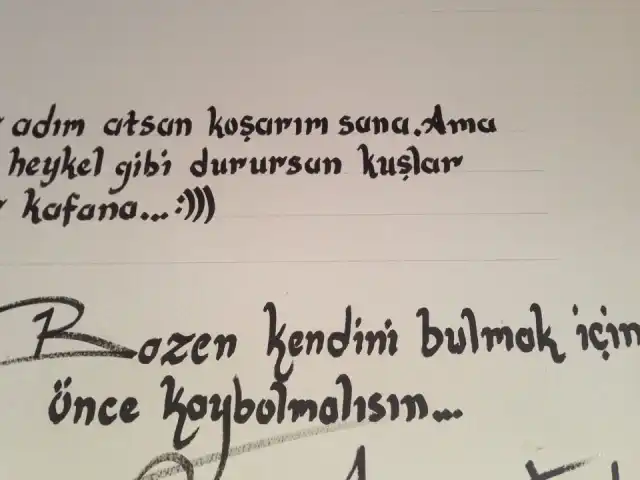 adım atsan koşarım sana. Ama
heykel gibi durursan kuşlar
kafana... :)))
Bazen kendini bulmak için
önce kaybolmalısın...